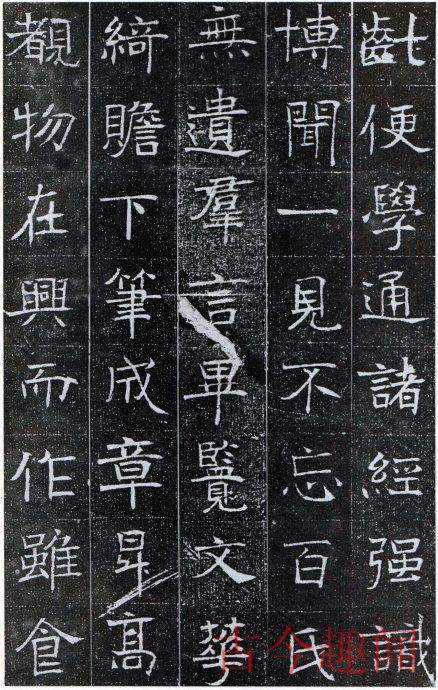 齔便學通諸經强識
博聞一見不忘百氏
無遺羣言畢覽文華
綺贍下筆成章昇高
覩物在興而作雖食
古今趣闻